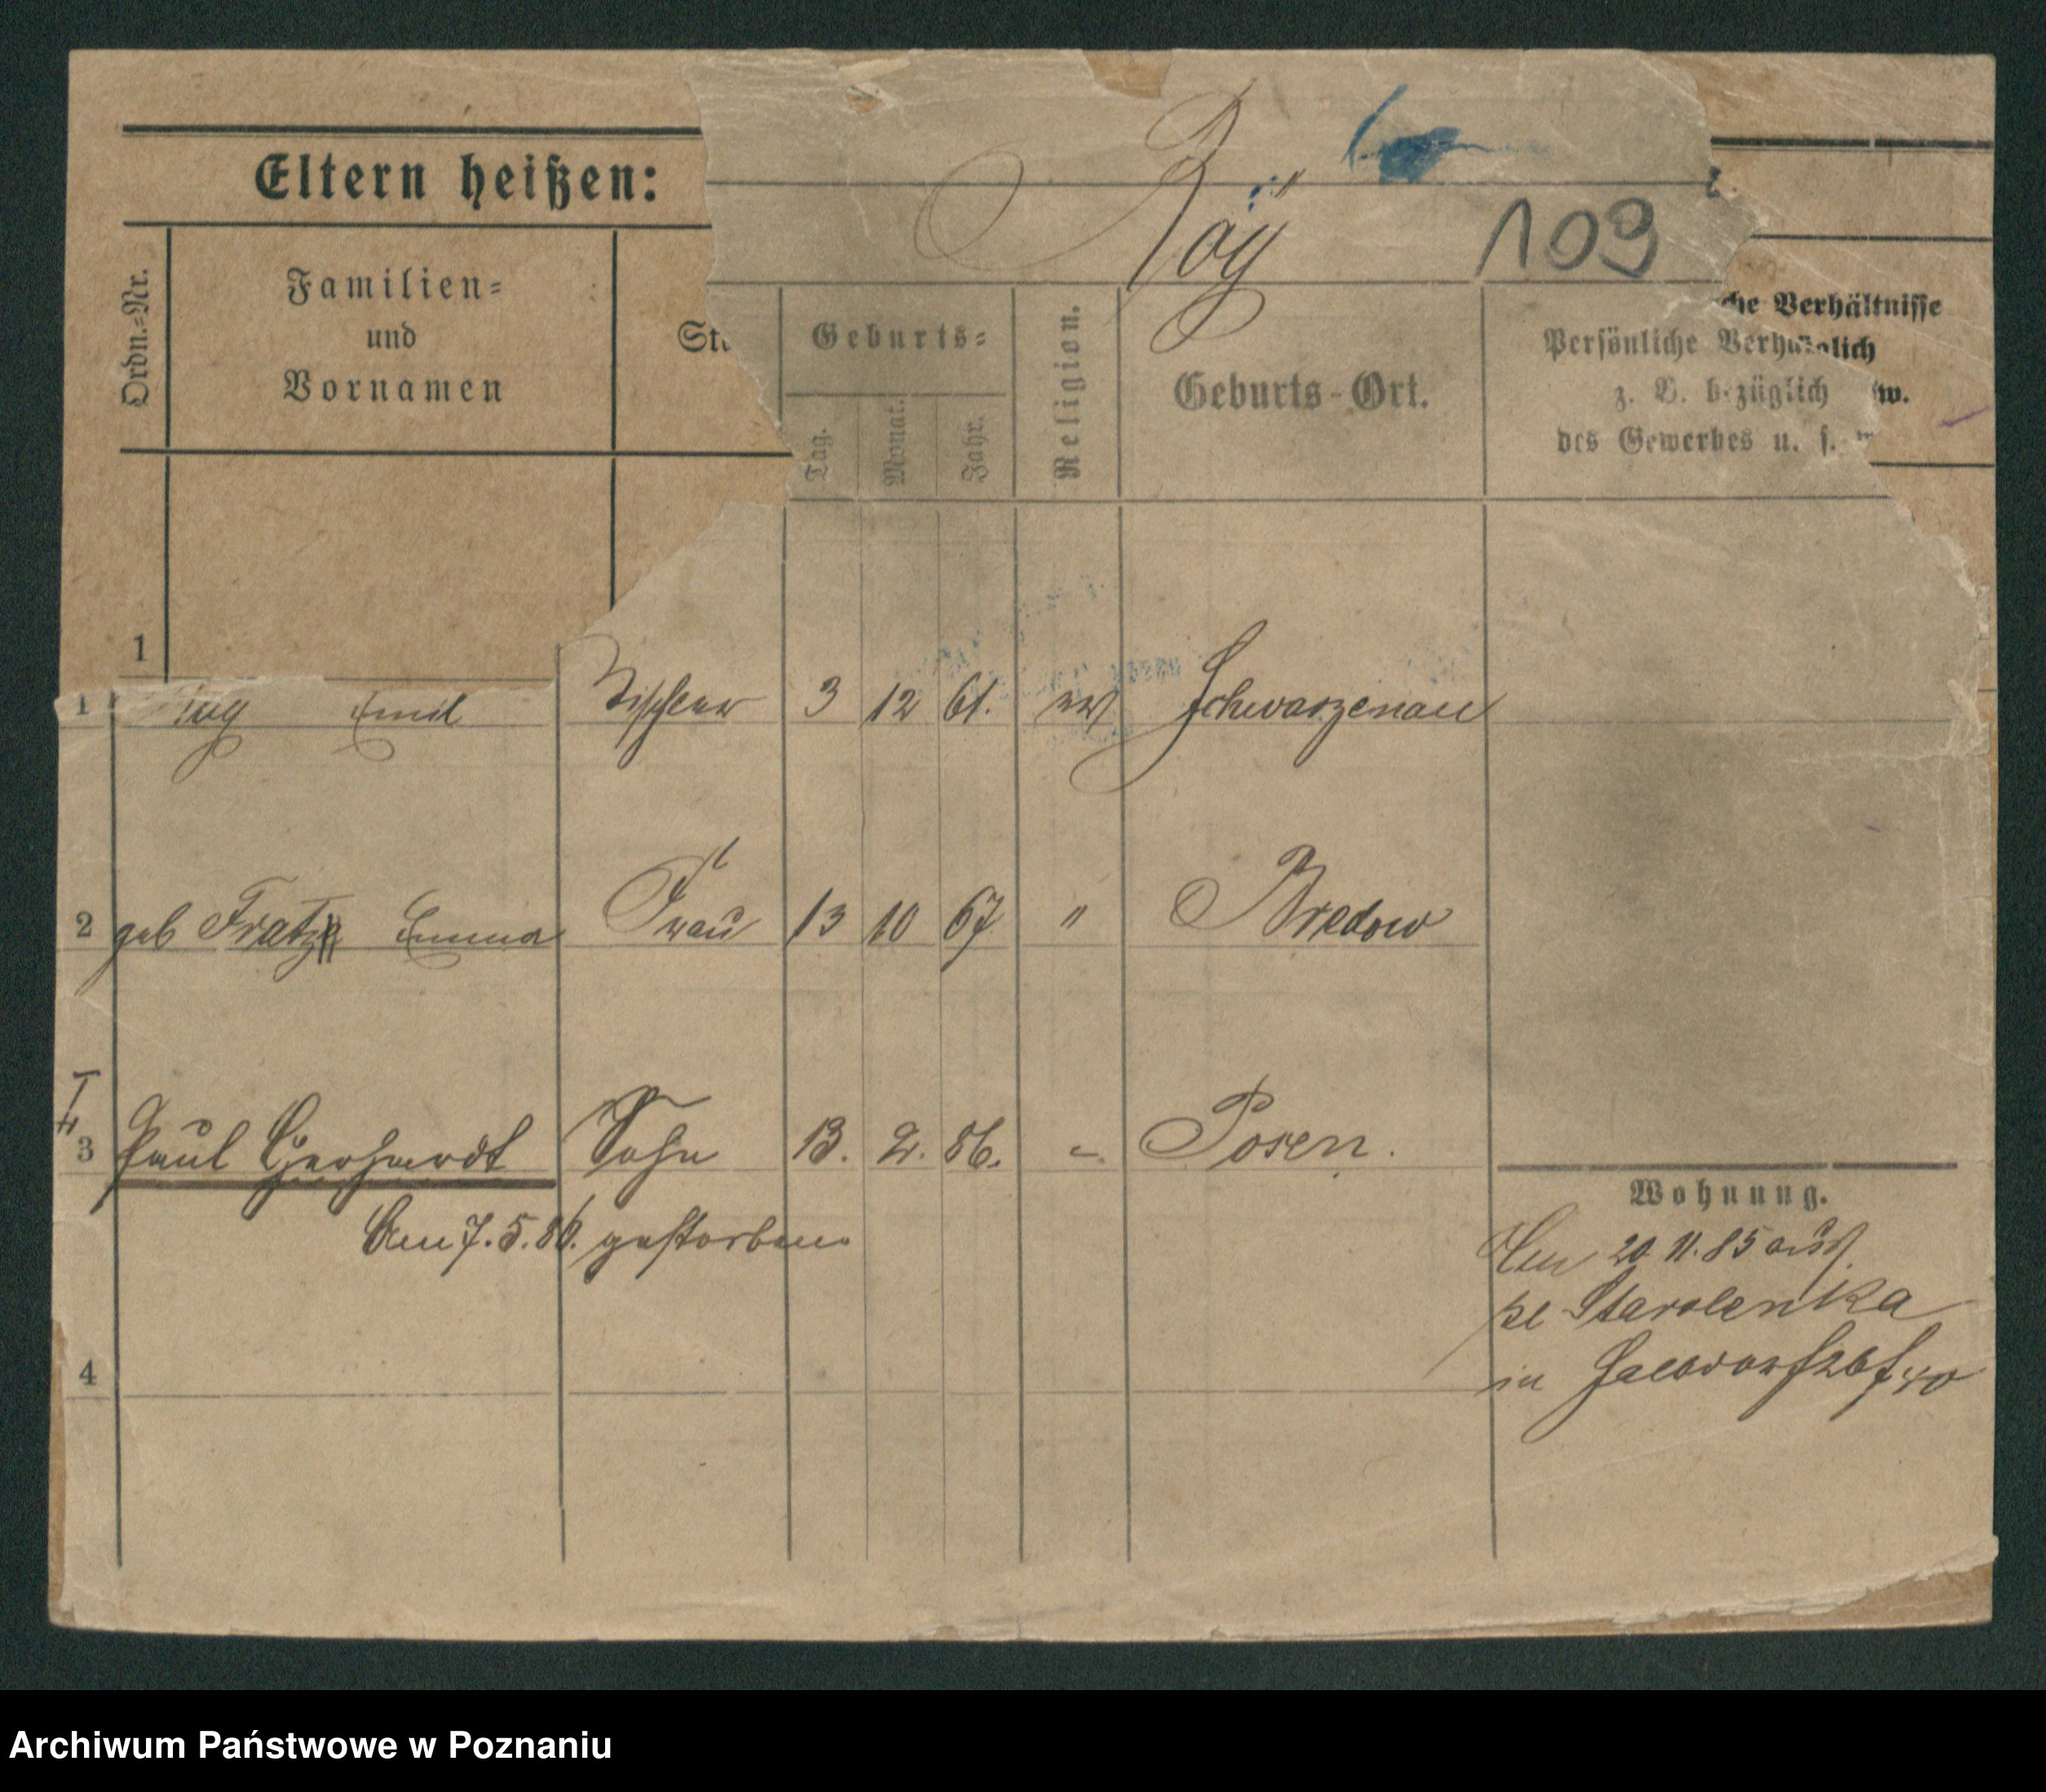 Eltern heißen:
Röÿ
109
Ordn.=Nr.
Familien=
und
Vornamen
Geburts=
Tag.
Monat.
Jahr.
Religion.
Geburts-Ort.
che Verhältnisse
Persönliche
z. B. bezüglich
des Gewerbes u. s. w.
1
1 Emil Tischler 3 12 61. ev Schwarzenau
2 geb Fratz Emma Frau 13 10 67 " Bredow
3 Paul Gerhardt Sohn 13. 2. 86. Posen.
Am 7. 5. 86. gestorben
Wohnung.
20 11. 85
Starolenka
in
4
Archiwum Państwowe w Poznaniu